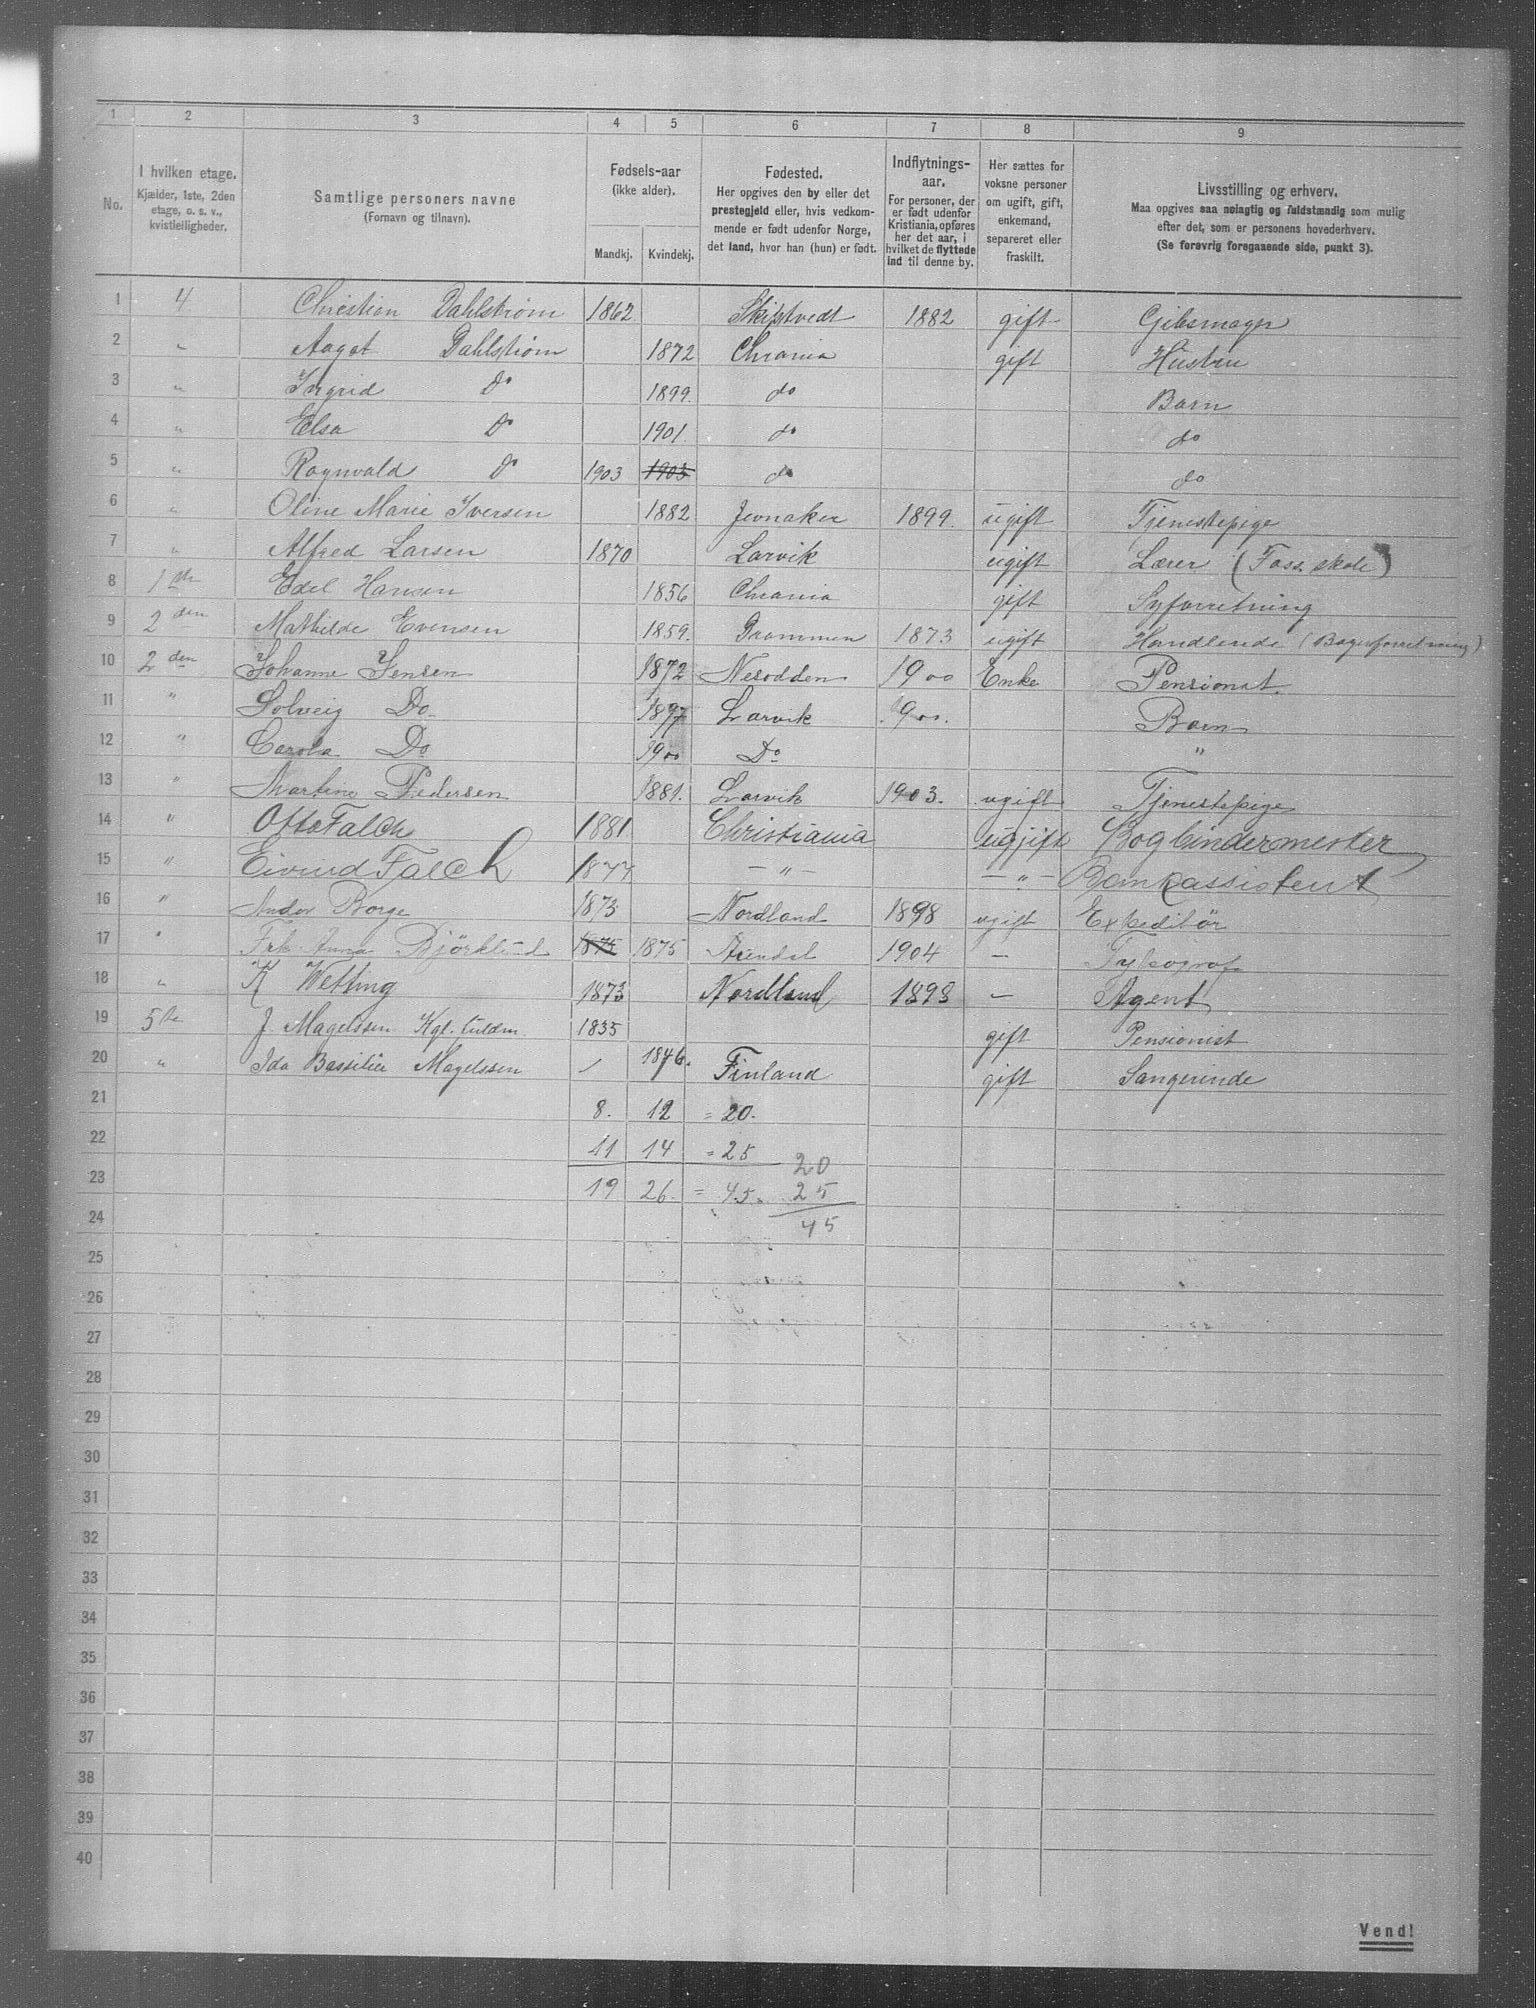 1 2 3 4 5 6 7 8 9
No. | I hvilken etage. Kjælder, 1ste, 2den etage, o. s. v., kvistleiligheder. | Samtlige personers navne (Fornavn og tilnavn). | Fødsels-aar (ikke alder). Mandkj. Kvindekj. | Fødested. Her opgives den by eller det prestegjeld eller, hvis vedkommende er født udenfor Norge, det land, hvor han (hun) er født. | Indflytnings-aar. For personer, der er født udenfor Kristiania, opføres her det aar, i hvilket de flyttede ind til denne by. | Her sættes for voksne personer om ugift, gift, enkemand, separeret eller fraskilt. | Livsstilling og erhverv. Maa opgives saa nøiagtig og fuldstændig som mulig efter det, som er personens hovederhverv. (Se forøvrig foregaaende side, punkt 3).
1 4 Christian Dahlstrøm 1862 Skiptvedt 1882 gift Gibsmager
2 " Aagot Dahlstrøm 1872 Chrania gift Hustru
3 " Ingrid Do 1899 do Barn
4 " Elsa Do 1901 do do
5 " Ragnvald Do 1903 1903 do do
6 " Oline Marie Iversen 1882 Jevnaker 1899 ugift Tjenestepige
7 " Alfred Larsen 1870 Larvik ugift Lærer (Foss skole)
8 1ste Edel Hansen 1856 Chrania gift Syforretning
9 2den Mathilde Evensen 1859. Drammen 1873 ugift Handlende (Bagerforretning)
10 2den Johanne Jensen 1872 Nesodden 1900 Enke Pensionat.
11 " Solveig Do. 1897 Larvik 1900. Barn
12 " Carola Do 1900 Do "
13 " Martine Pedersen 1881. Larvik 1903. ugift Tjenestepige
14 " Otto Falch 1881 Christiania ugjift Bogbindermester
15 " Eivind Falch 1877 — " — — " — Bankassistent
16 " Andor Borge 1873 Nordland 1898 ugift Expeditör
17 " Frk. Anna Björklund 1875 1875 Arendal 1904 —
18 " K Wetting 1873 Nordland 1898 — Agent
19 5te J. Magelssen Kgl. fuldm 1835 gift Pensionist
20 " Ida Bassilier Magelssen / 1846. Finland gift Sangerinde
21 8. 12 = 20.
22 11 14 = 25 20
23 19 26. = 45. 25
24 45
25
26
27
28
29
30
31
32
33
34
35
36
37
38
39
40
Vend!